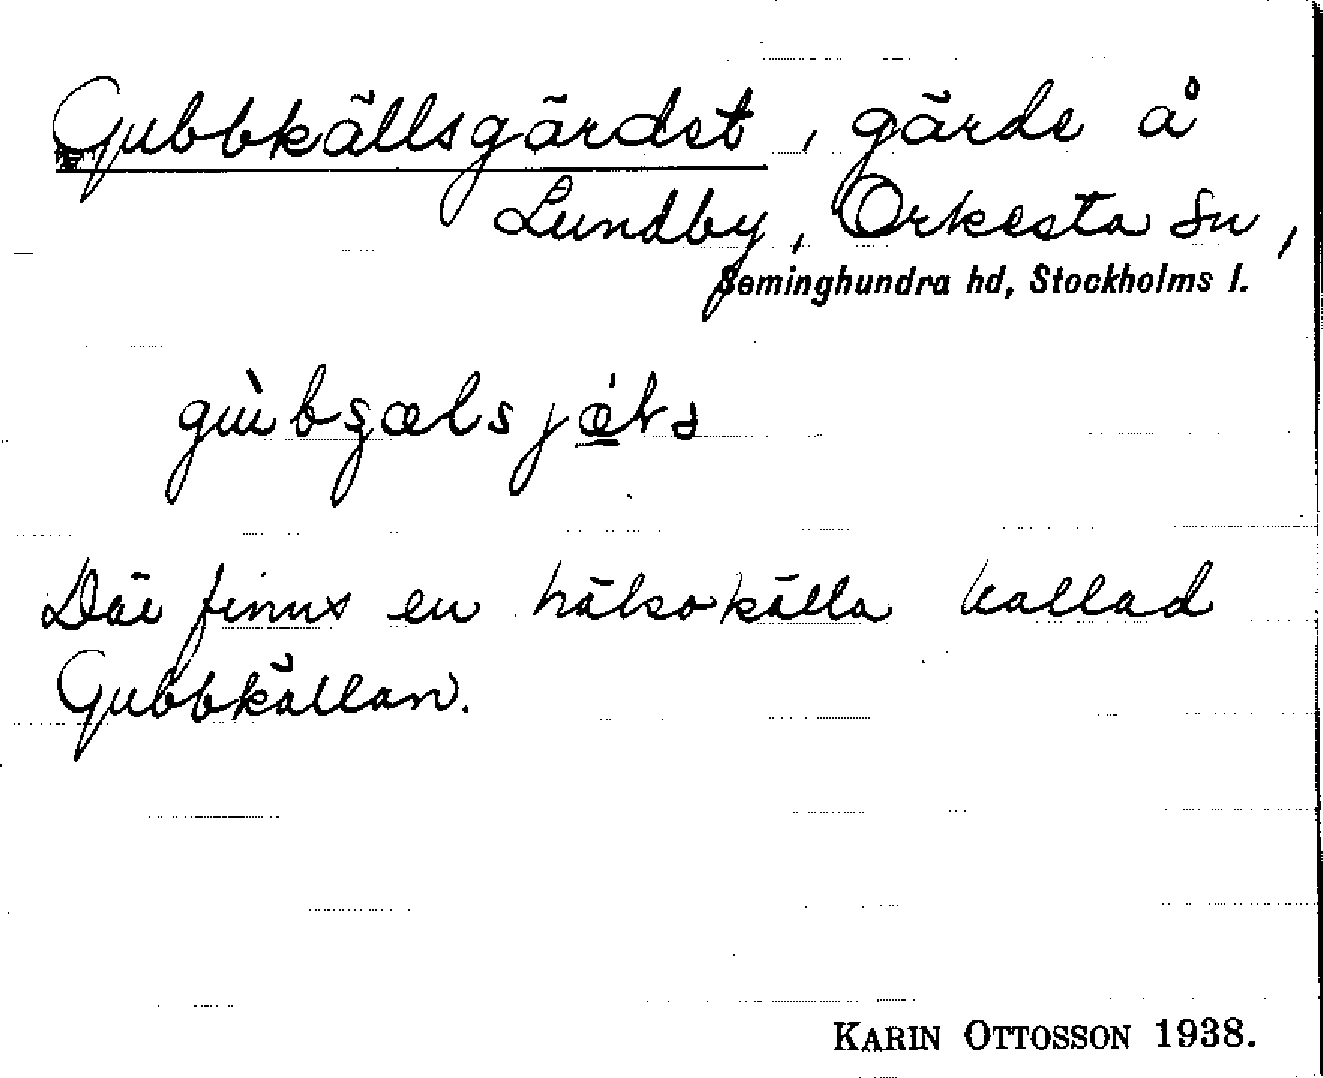 Gubbkällsgärdet, gärde å
Lundby, Orkesta sn,
Seminghundra hd, Stockholms l.
Där finns en hälsokälla kallad
Gubbkällan.
KARIN OTTOSSON 1938.